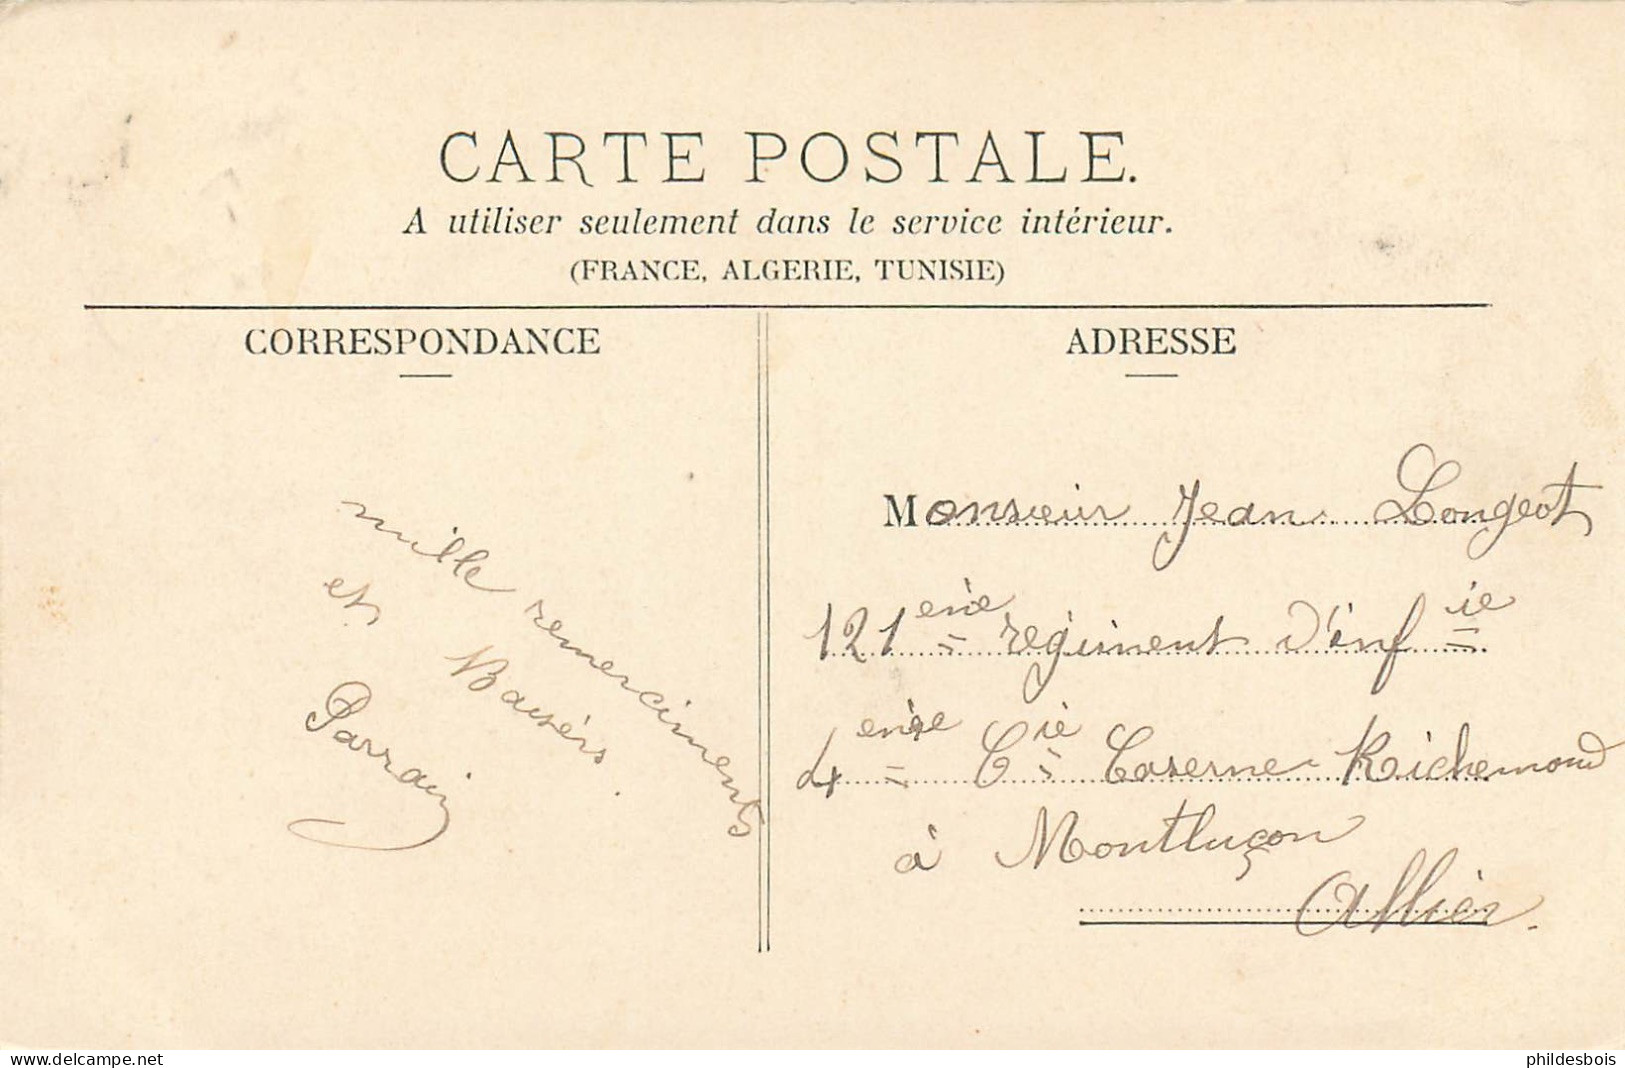 CARTE POSTALE.
A utiliser seulement dans le service intérieur.
(FRANCE, ALGERIE, TUNISIE)
CORRESPONDANCE
mille remerciments
et Baisers.
Parrain
ADRESSE
Monsieur Jean Longeot
121ème régiment d'infie
4ème Cie Caserne Richemond
à Montluçon
Allier.
www.delcampe.net
phildesbois